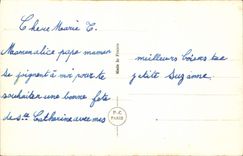 Chere Mauricette
Maman alice papa maman
se joignent à moi pour te
souhaiter une bonne fête
de Ste Catherine avec mes
meilleurs baisers ta
petite Suzanne
Made in France
P-C
PARIS